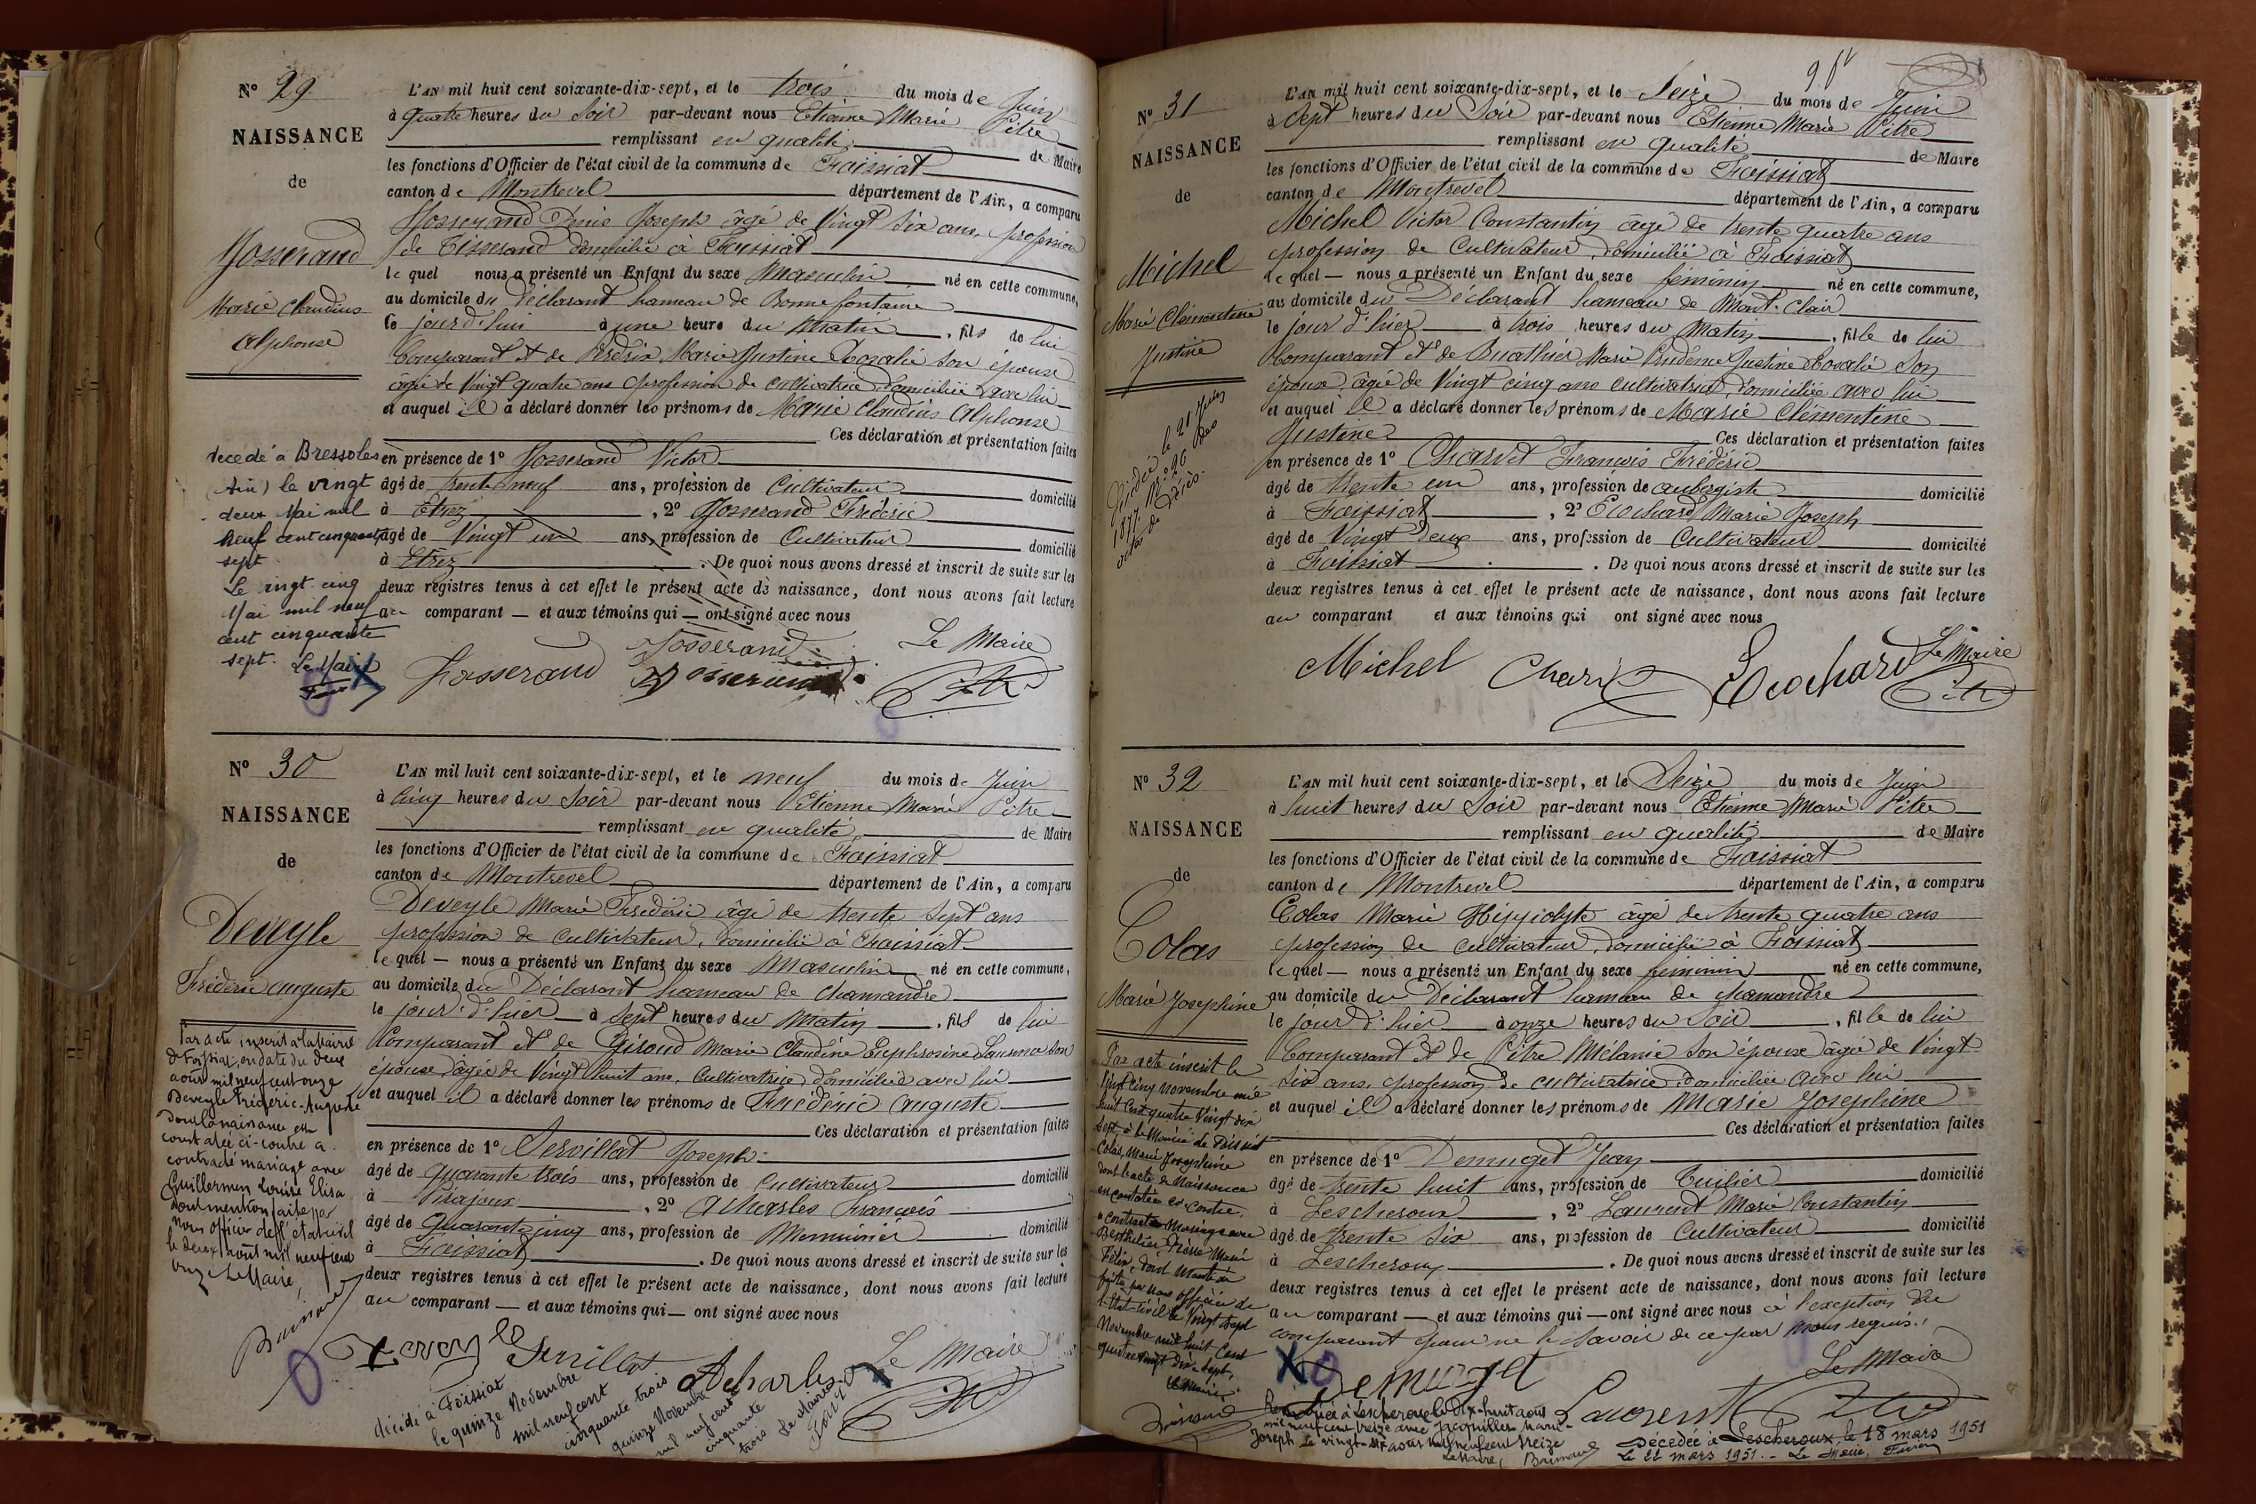 Nº 29
NAISSANCE
de
Josserand
Marie Claudius
Alphonse
L'AN mil huit cent soixante-dix-sept, et le trois du mois de Juin
à quatre heures du Soir par-devant nous Etienne Marie Pitre
remplissant en qualité de Maire
les fonctions d'Officier de l'état civil de la commune de Foissiat
canton de Montrevel département de l'Ain, a comparu
Josserand Denis Joseph âgé de Vingt six ans, profession
de Tisserand domicilié à Foissiat
lequel nous a présenté un Enfant du sexe Masculin né en cette commune,
au domicile du déclarant hameau de Bonnefontaine
le jour d'hui à une heure du Matin, fils de lui
Comparant et de Perdrix Marie Justine Rosalie son épouse
âgée de Vingt quatre ans profession de cultivatrice, domiciliée avec lui
et auquel il a déclaré donner les prénoms de Marie Claudius Alphonse
Ces déclaration et présentation faites
en présence de 1º Josserand Victor
âgé de trente neuf ans, profession de Cultivateur domicilié
à Etrez, 2º Josserand Frédéric
âgé de Vingt un ans, profession de Cultivateur domicilié
à Etrez. De quoi nous avons dressé et inscrit de suite sur les
deux registres tenus à cet effet le présent acte de naissance, dont nous avons fait lecture
au comparant — et aux témoins qui — ont signé avec nous
Le Maire
Josserand Josserand
Josserand Pitre
decedé à Bressolles
(Ain) le vingt
deux Mai mil
neuf cent cinquante
sept.
Le vingt cinq
Mai mil neuf
cent cinquante
sept. Le Maire
Nº 30
NAISSANCE
de
Deveyle
Frédéric Auguste
L'AN mil huit cent soixante-dix-sept, et le neuf du mois de Juin
à Cinq heures du Soir par-devant nous Etienne Marie Pitre
remplissant en qualité de Maire
les fonctions d'Officier de l'état civil de la commune de Foissiat
canton de Montrevel département de l'Ain, a comparu
Deveyle Marie Frédéric âgé de trente sept ans
profession de cultivateur, domicilié à Foissiat
lequel — nous a présenté un Enfant du sexe Masculin né en cette commune,
au domicile du Déclarant hameau de Chamandre
le jour d'hier à Sept heures du Matin, fils de lui
Comparant et de Giroud Marie Claudine Euphrosine son
épouse âgée de Vingt huit ans, Cultivatrice, domiciliée avec lui
et auquel il a déclaré donner les prénoms de Frédéric Auguste
Ces déclaration et présentation faites
en présence de 1º Servillat Joseph
âgé de quarante trois ans, profession de Cultivateur domicilié
à Pirajoux, 2º Acharles François
âgé de Quarante cinq ans, profession de Menuisier domicilié
à Foissiat. De quoi nous avons dressé et inscrit de suite sur les
deux registres tenus à cet effet le présent acte de naissance, dont nous avons fait lecture
au comparant — et aux témoins qui — ont signé avec nous
Deveyle Servillat Acharles Le Maire
Pitre
Par acte inscrit à la Mairie
de Foissiat, en date du deux
août mil neuf cent onze
Deveyle Frédéric-Auguste
dont la naissance est
constatée ci-contre a
contracté mariage avec
Guillermin Louise Elisa
dont mention faite par
nous officier de l'état civil
le deux août mil neuf cent
onze. Le Maire,
décédé à Foissiat
le quinze Novembre
mil neuf cent
cinquante trois
quinze Novembre
mil neuf cent
cinquante
trois Le Maire
Nº 31
NAISSANCE
de
Michel
Marie Clémentine
Justine
L'AN mil huit cent soixante-dix-sept, et le Seize du mois de Juin
à Sept heures du Soir par-devant nous Etienne Marie Pitre
remplissant en qualité de Maire
les fonctions d'Officier de l'état civil de la commune de Foissiat
canton de Montrevel département de l'Ain, a comparu
Michel Victor Constantin âgé de trente quatre ans
profession de Cultivateur, domicilié à Foissiat
lequel — nous a présenté un Enfant du sexe féminin né en cette commune,
au domicile du Déclarant hameau de Mont-Clair
le jour d'hier à trois heures du Matin, fille de lui
Comparant et de Buathier Marie Prudence Justine Rosalie Son
épouse âgée de Vingt cinq ans cultivatrice, domiciliée avec lui
et auquel il a déclaré donner les prénoms de Marie Clémentine
Justine Ces déclaration et présentation faites
en présence de 1º Charvet François Frédéric
âgé de trente un ans, profession de aubergiste domicilié
à Foissiat, 2º Ecochard Marie Joseph
âgé de Vingt deux ans, profession de Cultivateur domicilié
à Foissiat. De quoi nous avons dressé et inscrit de suite sur les
deux registres tenus à cet effet le présent acte de naissance, dont nous avons fait lecture
au comparant et aux témoins qui ont signé avec nous
Michel Ecochard Le Maire
Pitre
1877 Nº 26 des
actes de Décès.
Nº 32
NAISSANCE
de
Colas
Marie Josephine
L'AN mil huit cent soixante-dix-sept, et le Seize du mois de Juin
à huit heures du Soir par-devant nous Etienne Marie Pitre
remplissant en qualité de Maire
les fonctions d'Officier de l'état civil de la commune de Foissiat
canton de Montrevel département de l'Ain, a comparu
Colas Marie Hippolyte âgé de trente quatre ans
profession de cultivateur domicilié à Foissiat
lequel — nous a présenté un Enfant du sexe féminin né en cette commune,
au domicile du Déclarant hameau de Chamandre
le jour d'hier à onze heures du Soir, fille de lui
Comparant et de Pitre Mélanie Son épouse âgée de Vingt
six ans, profession de cultivatrice domiciliée avec lui
et auquel il a déclaré donner les prénoms de Marie Josephine
Ces déclaration et présentation faites
en présence de 1º Demuget Jean
âgé de trente huit ans, profession de Tuilier domicilié
à Lescheroux, 2º Laurent Marie Constantin
âgé de trente six ans, profession de Cultivateur domicilié
à Lescheroux. De quoi nous avons dressé et inscrit de suite sur les
deux registres tenus à cet effet le présent acte de naissance, dont nous avons fait lecture
au comparant — et aux témoins qui — ont signé avec nous à l'exception du
comparant pour ne le savoir de ce par nous requis.
Le Maire
Demuget Laurent Pitre
Par acte inscrit le
Vingt cinq novembre mil
huit cent quatre Vingt dix
sept à la Mairie de Foissiat
Colas, Marie Josephine
dont l'acte de Naissance
est constatée ci-contre,
a contracté Mariage avec
Berthelier Pierre Marie
Félix, dont Mention
faite par nous officier de
l'Etat-civil le Vingt Sept
Novembre mil huit Cent
quatre vingt dix-sept,
Le Maire.
Remariée à Lescheroux le dix-huit août
mil neuf cent treize avec Jacquiller Marie-
Joseph Le vingt-six août mil neuf cent treize
Le Maire,
Décédée à Lescheroux le 18 mars 1951
Le 22 mars 1951. - Le Maire,